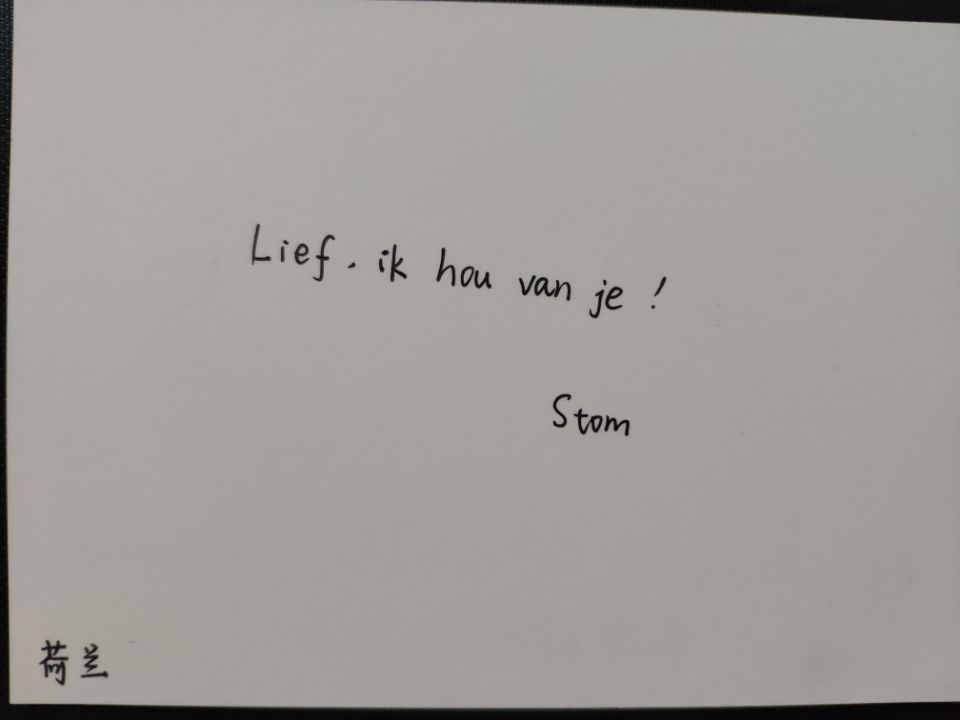 Lief, ik hou van je!
Stom
荷兰